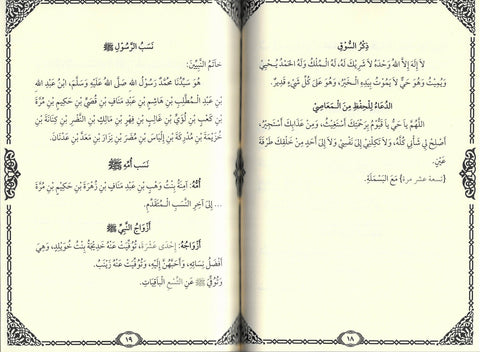 ذِكْرُ السُّوْقِ
لَا إِلٰهَ إِلَّا اللهُ وَحْدَهُ لَا شَرِيْكَ لَهُ، لَهُ الْمُلْكُ وَلَهُ الْحَمْدُ يُحْيِيْ
وَيُمِيْتُ وَهُوَ حَيٌّ لَا يَمُوْتُ بِيَدِهِ الْخَيْرُ، وَهُوَ عَلَىٰ كُلِّ شَيْءٍ قَدِيْرٌ.
الدُّعَاءُ لِلْحِفْظِ مِنَ الْمَعَاصِيْ
اللَّهُمَّ يَا حَيُّ يَا قَيُّوْمُ بِرَحْمَتِكَ أَسْتَغِيْثُ، وَمِنْ عَذَابِكَ أَسْتَجِيْرُ،
أَصْلِحْ لِيْ شَأْنِيْ كُلَّهُ، وَلَا تَكِلْنِيْ إِلَىٰ نَفْسِيْ وَلَا إِلَىٰ أَحَدٍ مِنْ خَلْقِكَ طَرْفَةَ
عَيْنٍ.
{تسعة عشر مرة} مَعَ الْبَسْمَلَةِ.
١٨
نَسَبُ الرَّسُوْلِ ﷺ
خَاتَمُ النَّبِيِّيْنَ:
هُوَ سَيِّدُنَا مُحَمَّدٌ رَسُوْلُ اللهِ صَلَّى اللهُ عَلَيْهِ وَسَلَّمَ، ابْنُ عَبْدِ اللهِ
بْنِ عَبْدِ الْمُطَّلِبِ بْنِ هَاشِمِ بْنِ عَبْدِ مَنَافِ بْنِ قُصَيِّ بْنِ حَكِيْمِ بْنِ مُرَّةَ
بْنِ كَعْبِ بْنِ لُؤَيِّ بْنِ غَالِبِ بْنِ فِهْرِ بْنِ مَالِكِ بْنِ النَّضْرِ بْنِ كِنَانَةَ بْنِ
خُزَيْمَةَ بْنِ مُدْرِكَةَ بْنِ إِلْيَاسَ بْنِ مُضَرَ بْنِ نِزَارِ بْنِ مَعَدِّ بْنِ عَدْنَانَ.
نَسَبُ أُمِّهِ ﷺ
أُمُّهُ: آمِنَةُ بِنْتُ وَهْبِ بْنِ عَبْدِ مَنَافِ بْنِ زُهْرَةَ بْنِ حَكِيْمِ بْنِ مُرَّةَ
... إِلَىٰ آخِرِ النَّسَبِ الْمُتَقَدِّمِ.
أَزْوَاجُ النَّبِيِّ ﷺ
أَزْوَاجُهُ: إِحْدَىٰ عَشْرَةَ، تُوُفِّيَتْ عَنْهُ خَدِيْجَةُ بِنْتُ خُوَيْلِدٍ، وَهِيَ
أَفْضَلُ نِسَائِهِ، وَأَحَبُّهُنَّ إِلَيْهِ، وَتُوُفِّيَتْ عَنْهُ زَيْنَبُ.
وَتُوُفِّيَ ﷺ عَنِ التِّسْعِ الْبَاقِيَاتِ.
١٩